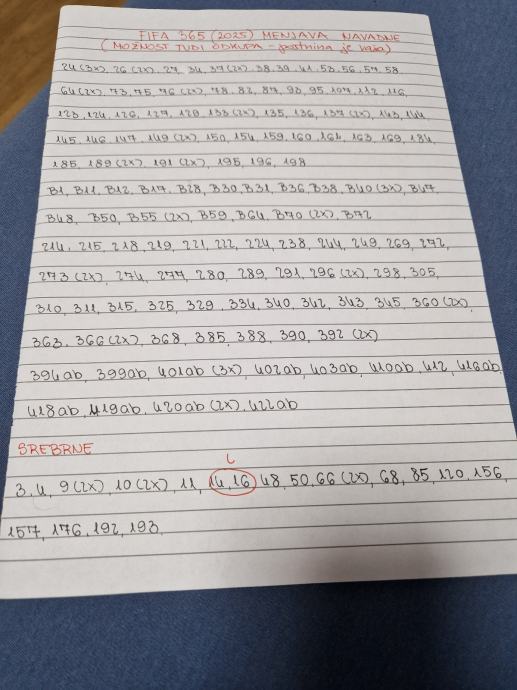 FIFA 365 (2025) MENJAVA NAVADNE
(MOŽNOST TUDI ODKUPA - poštnina je vaša)
24(3x), 26(2x), 27, 34, 37(2x), 38, 39, 41, 53, 56, 57, 58,
64(2x), 73, 75, 76(2x), 78, 82, 87, 93, 95, 107, 112, 116,
123, 124, 126, 127, 129, 133(2x), 135, 136, 137(2x), 143, 144
145, 146, 147, 149(2x), 150, 154, 159, 160, 161, 163, 169, 184,
185, 189(2x), 191(2x), 195, 196, 198
B1, B11, B12, B17, B28, B30, B31, B36, B38, B40(3x), B47,
B48, B50, B55(2x), B59, B64, B70(2x), B72
214, 215, 218, 219, 221, 222, 224, 238, 244, 249, 269, 272,
273(2x), 274, 277, 280, 289, 291, 296(2x), 298, 305,
310, 311, 315, 325, 329, 334, 340, 342, 343, 345, 360(2x),
363, 366(2x), 368, 385, 388, 390, 392(2x)
394ab, 399ab, 401ab(3x), 402ab, 403ab, 410ab, 412, 416ab,
418ab, 419ab, 420ab(2x), 422ab
SREBRNE
3, 4, 9(2x), 10(2x), 11, 14, 16, 48, 50, 66(2x), 68, 85, 120, 156,
157, 176, 192, 193